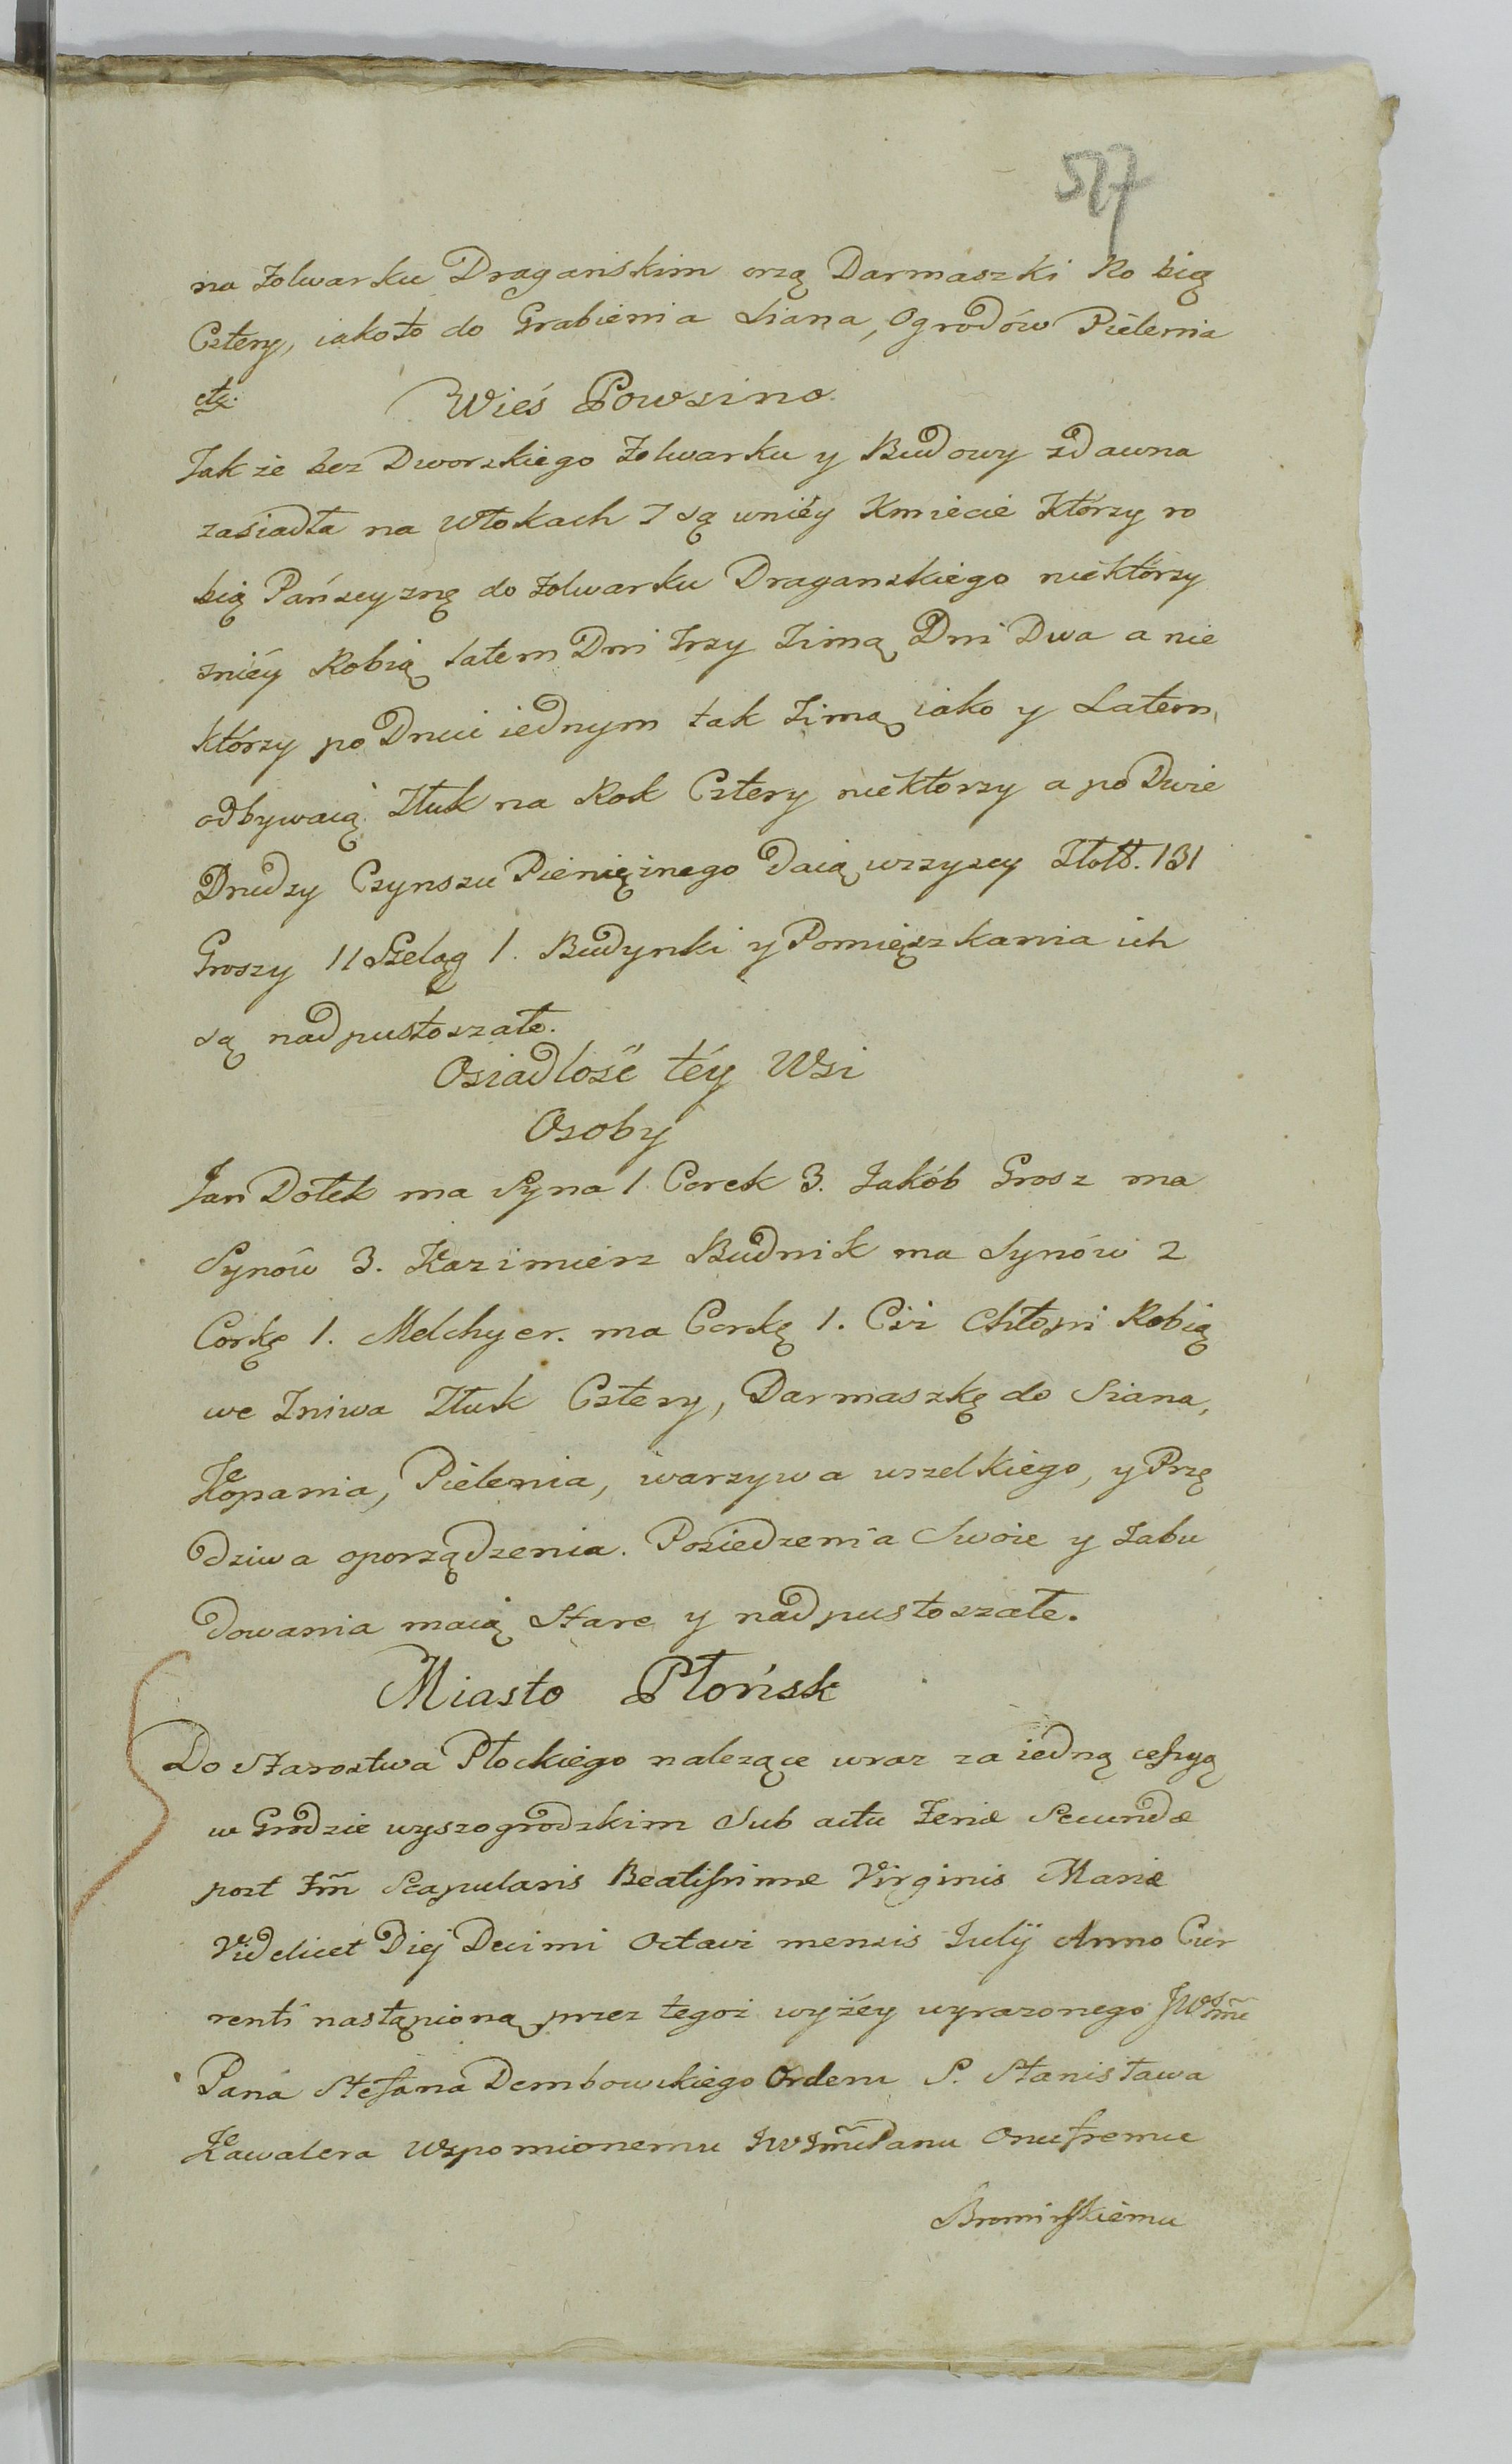 517
na Folwarku Draganskim orzą Darmaszki Ro bią
Cztery, iakoto do Grabienia Siana, Ogrodów Pielenia
etc. Wieś Powsino.
Jakże bez Dworskiego Folwarku y Budowy zdawna
zasiadła na Włokach 7 są wniéy Kmiecie Którzy ro
bią Pańscyznę do Folwarku Draganskiego niektórzy
zniéy Robią Latem Dni Trzy Zimą Dni Dwa a nie
którzy po Dniu iednym tak Zimą iako y Latem,
odbywaią Tłuk na Rok Cztery niektórzy a po Dwie
Drudzy Czynszu Pieniężnego daią wszyscy Złott. 131
Groszy 11 Szeląg 1. Budynki y Pomięszkania ich
są nadpustoszałe.
Osiadlość téy Wsi
Osoby
Jan Dołek ma Syna 1 Corek 3. Jakób Grosz ma
Synów 3. Kazimierz Budnik ma Synów 2
Corkę 1. Melchyer. ma Corkę 1. Cii Chłopi Robią
we Zniwa Tłuk Cztery, Darmaszkę do Siana,
Kopania, Pielenia, warzywa wszelkiego, y Przę
dziwa oporządzenia. Posiedzenia Swoie y Zabu
dowania maią Stare y nadpustoszałe.
Miasto Płońsk
Do Starostwa Płockiego nalezące wraz za iedną cessyą
w Grodzie wyszogrodzkim Sub actu Feriæ Secundæ
post Fm̃ Scapularis Beatissimæ Virginis Mariæ
Videlicet Diej Decimi Octavi mensis Julÿ Anno Cur
renti nastąpioną przez tegoż wyżéy wyrazonego JWJm̃
Pana Stefana Dembowskiego Orderu S. Stanisława
Kawalera Wspomionemu JWJm̃Panu Onufremu
Bromirskiemu